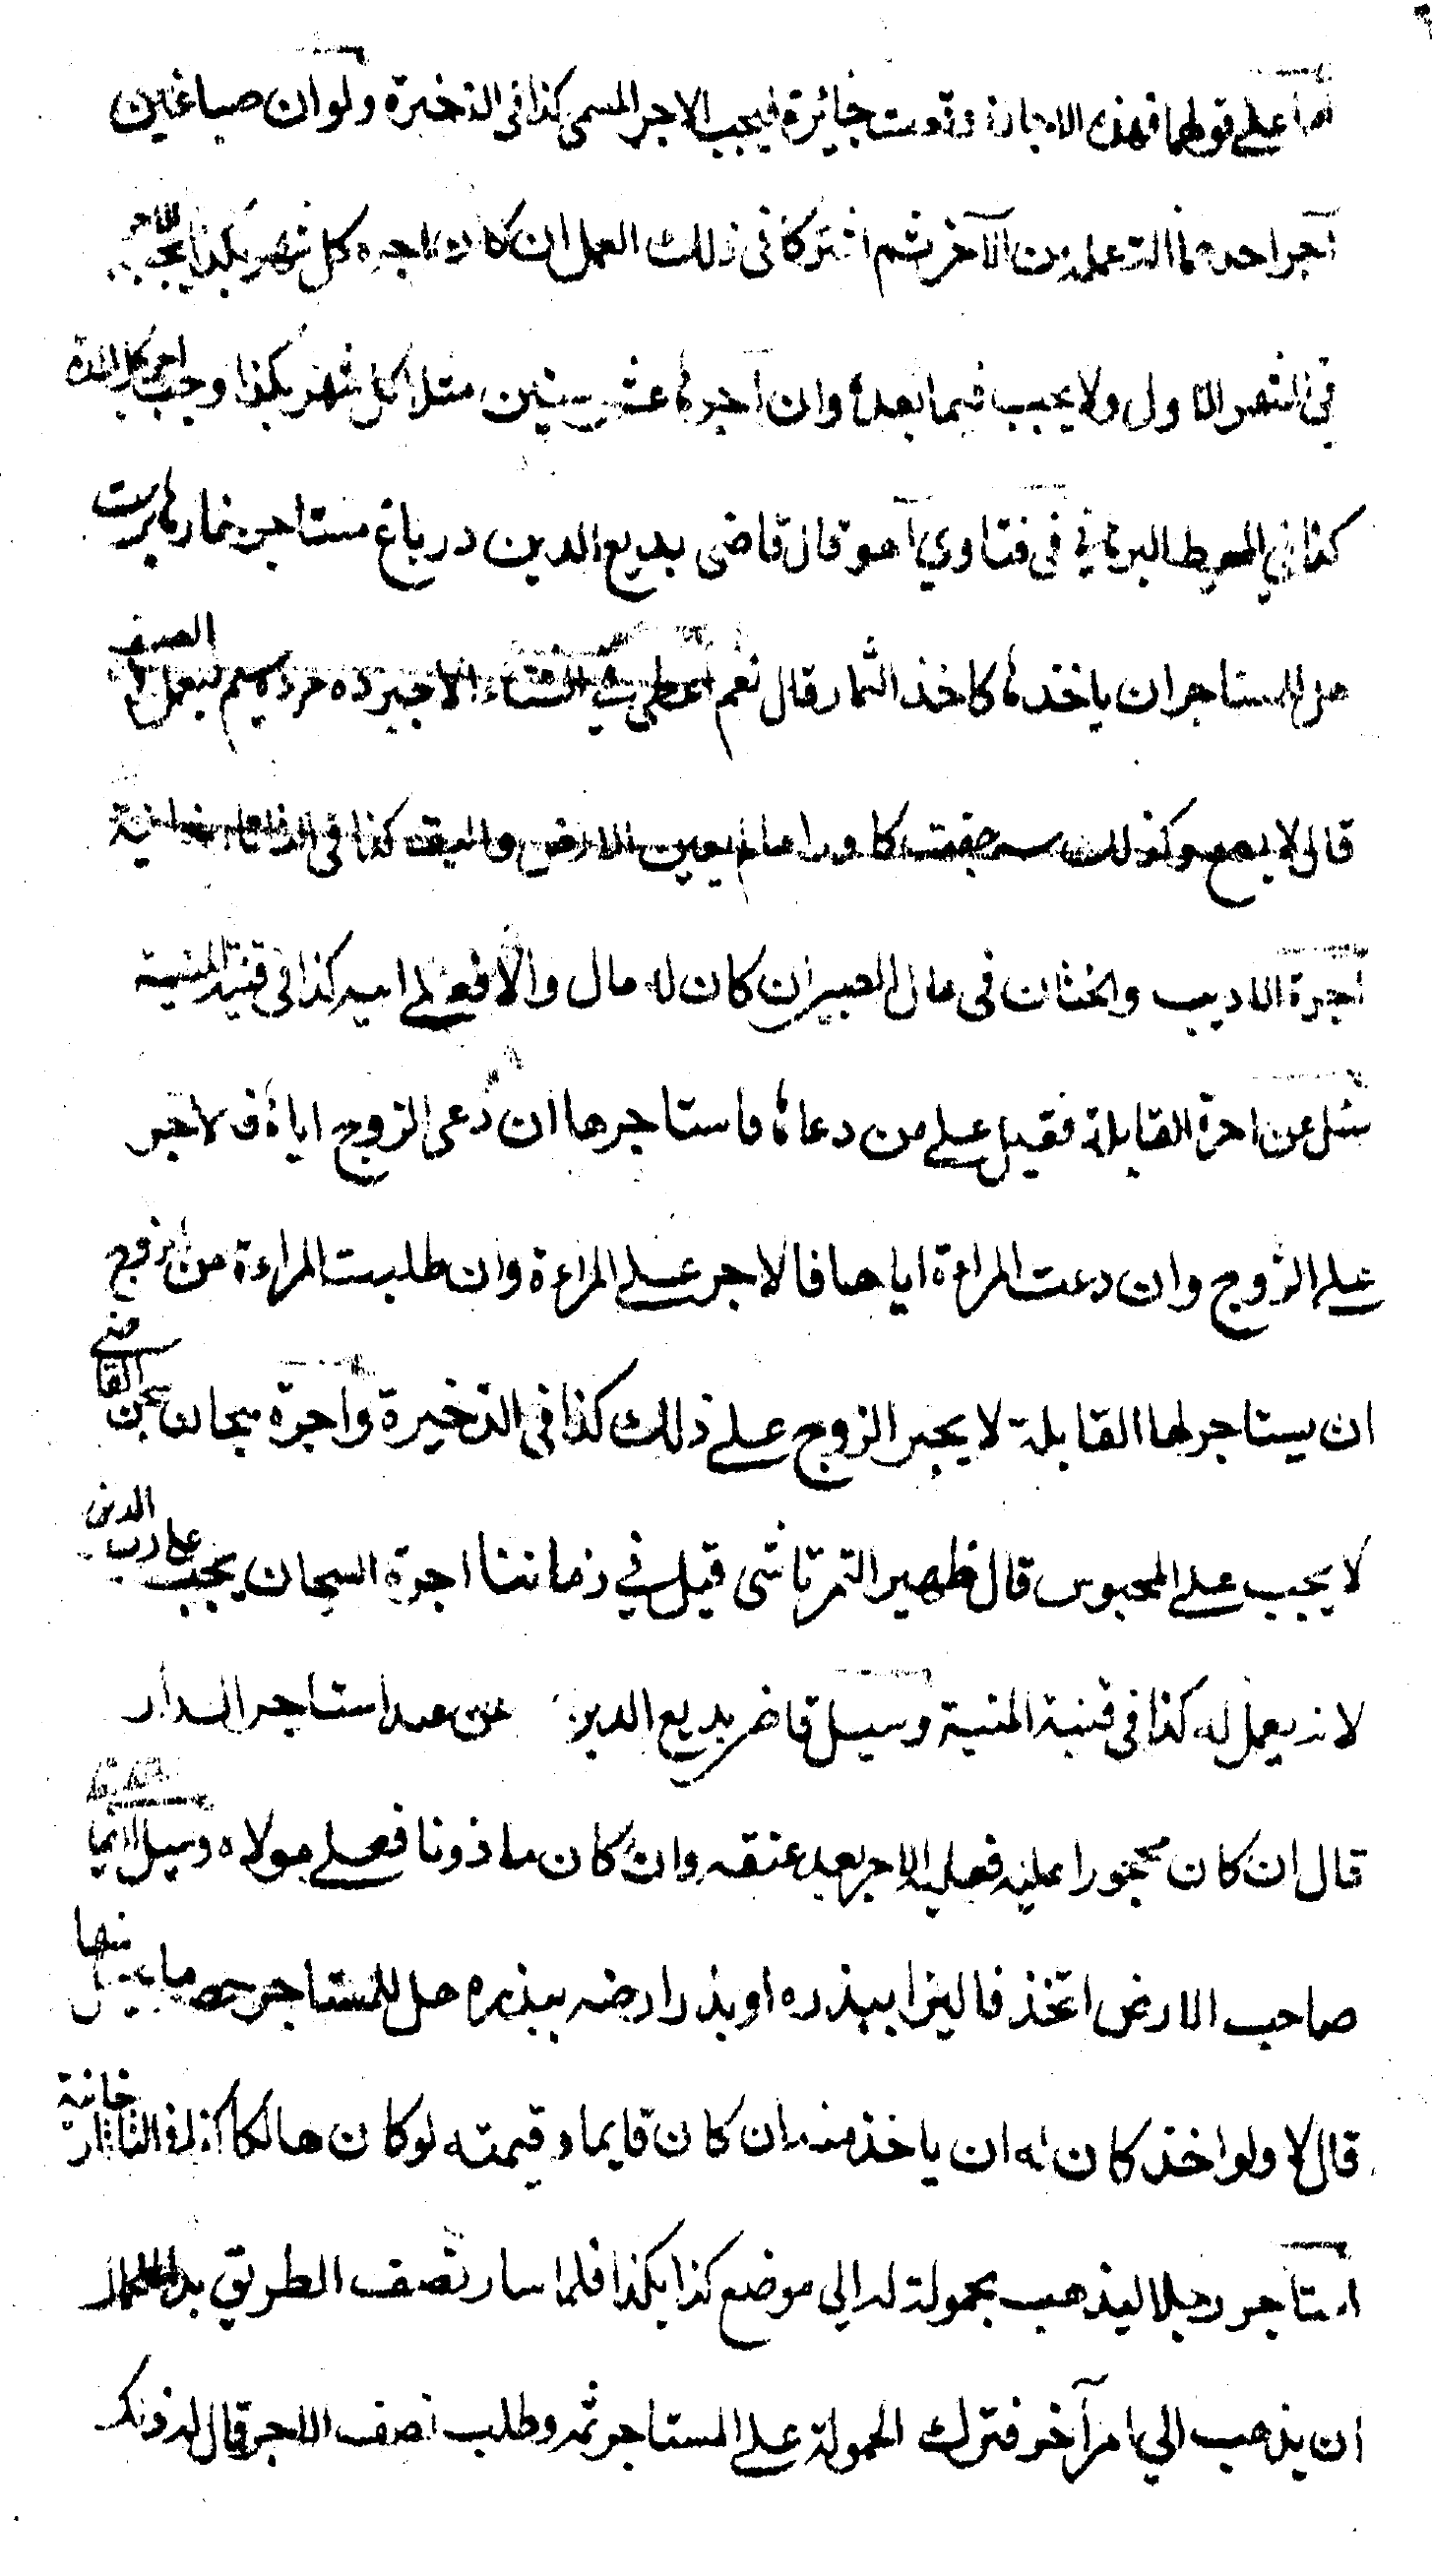 اما على قولهما فهذه الاجارة وقعت جائزة فيجب الاجر المسمى كذا فى الذخيرة ولو ان صباغين
آجر احدهما آلة عمله من الآخر ثم اشتركا فى ذلك العمل ان كان اجره كل شهر بكذا يجب الاجر
فى الشهر الاول ولا يجب فيما بعده وان آجرها عشر سنين مثلا كل شهر بكذا وجب اجر كل المدة
كذا في المحيط البرهاني فى فتاوي آهو قال قاضى بديع الدين در باغ مستاجر
هل للمستاجر ان ياخذها كاخذ الثمار قال نعم اعطى في الشتاء الاجير ده مرده سيم ليعمل له الصيف
قال لا يصح وكذلك كذا فى التاتارخانية
اجرة الاديب والختان فى مال الصبى ان كان له مال والا فعلى ابيه كذا فى قنية المنية
سئل عن اجرة القابلة فقيل على من دعاها فاستاجرها ان دعى الزوج اياها فالاجر
على الزوج وان دعت المراءة اياها فالاجر على المراءة وان طلبت المراءة من الزوج
ان يستاجر لها القابلة لا يجبر الزوج على ذلك كذا فى الذخيرة واجرة سجان سجن القاضى
لا يجب على المحبوس قال ظهير التمرتاشى قيل في زماننا اجرة السجان يجب على رب الدين
لانه يعمل له كذا فى قنية المنية وسيل قاضى بديع الدين عن عبد استاجر الدار
قال ان كان محجورا عليه فعليه الاجر بعد عتقه وان كان ماذونا فعلى مولاه وسيل ايضا
صاحب الارض اتخذ فاليزا ببذره او بذر ارضه ببذره هل للمستاجر حصة ما منها
قال لا ولو اخذ كان له ان ياخذ منه ان كان قايما وقيمته لو كان هالكا كذا فى التاتارخانية
استاجر رجلا ليذهب بحمولة له الي موضع كذا بكذا فلما سار نصف الطريق بدا للحمال
ان يذهب الي امر آخر فترك الحمولة على المستاجر ثمه وطلب نصف الاجر قال له ذلك